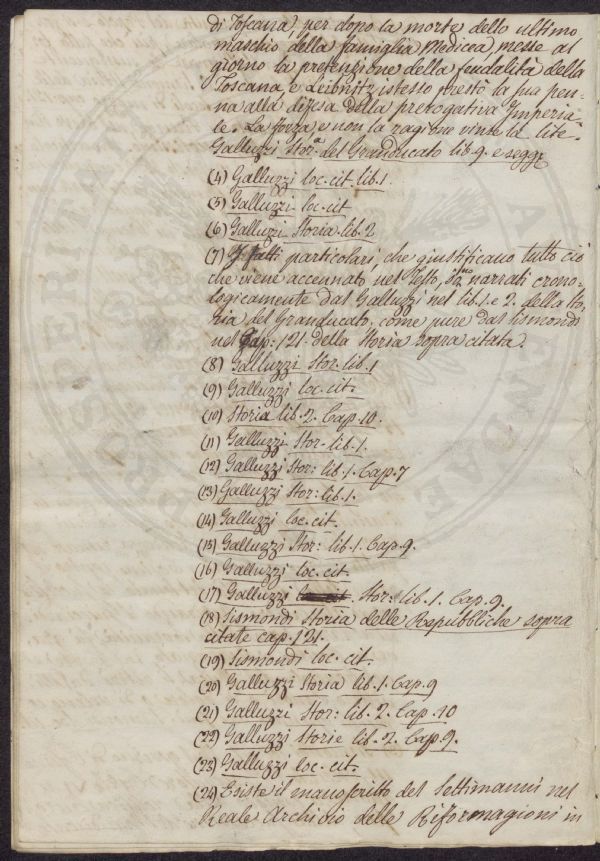 di Toscana, per dopo la morte dello ultimo
maschio della famiglia Medicea, messe al
giorno la pretensione della feudalità della
Toscana, e Leibnitz istesso prestò la sua pen-
na alla difesa della prerogativa Imperia-
le. La forza e non la ragione vinse la lite-
Galluzzi Stor.a del Granducato lib. 9. e segg.
(4) Galluzzi loc. cit. lib. 1.
(5) Galluzzi loc. cit.
(6) Galluzzi Storia lib. 2
(7) I fatti particolari, che giustificano tutto ciò
che viene accennato nel Testo, sono narrati crono-
logicamente dal Galluzzi nel lib. 1. e 2. della Sto-
ria del Granducato, come pure dal Sismondi
nel Cap: 121. della Storia sopra citata.
(8) Galluzzi Stor. lib. 1
(9) Galluzzi loc. cit.
(10) Storia lib. 2. Cap. 10.
(11) Galluzzi Stor. lib. 1.
(12) Galluzzi Stor: lib. 1. Cap. 7
(13) Galluzzi Stor: lib. 1.
(14) Galluzzi loc. cit.
(15) Galluzzi Stor: lib. 1. Cap. 9.
(16) Galluzzi loc. cit.
(17) Galluzzi Stor: lib. 1. Cap. 9.
(18) Sismondi Storia delle Repubbliche sopra
citate cap. 121.
(19) Sismondi loc. cit.
(20) Galluzzi Storia lib. 1. Cap. 9
(21) Galluzzi Stor: lib. 2. Cap. 10
(22) Galluzzi Storie lib. 2. Cap. 9.
(23) Galluzzi loc. cit.
(24) Esiste il manoscritto del Settimanni nel
Reale Archivio delle Riformagioni in